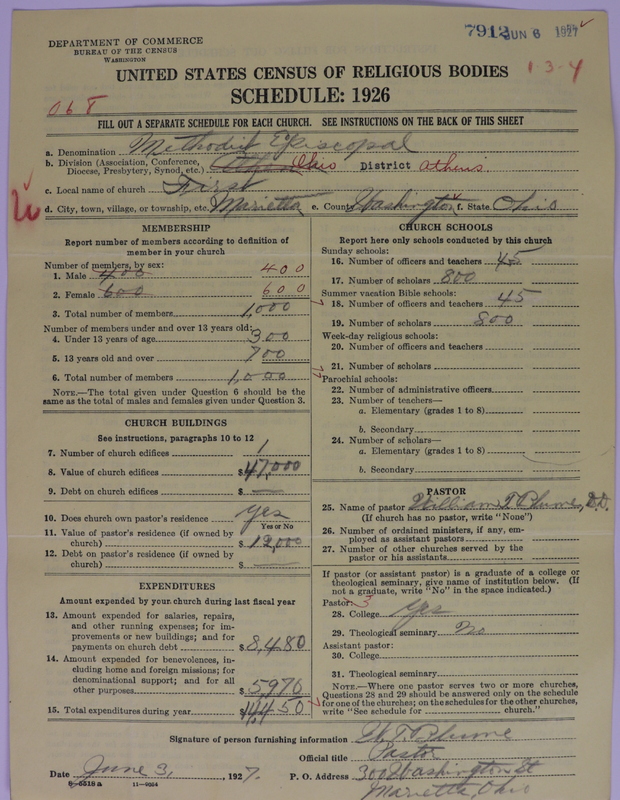 7912 JUN 6 1927
DEPARTMENT OF COMMERCE
BUREAU OF THE CENSUS
WASHINGTON
1-3-4
UNITED STATES CENSUS OF RELIGIOUS BODIES
SCHEDULE: 1926
068
FILL OUT A SEPARATE SCHEDULE FOR EACH CHURCH. SEE INSTRUCTIONS ON THE BACK OF THIS SHEET
a. Denomination Methodist Episcopal
b. Division (Association, Conference, Diocese, Presbytery, Synod, etc.) Ohio District Athens
c. Local name of church First
d. City, town, village, or township, etc. Marietta e. County Washington f. State Ohio
MEMBERSHIP
Report number of members according to definition of
member in your church
Number of members, by sex:
1. Male 400 400
2. Female 600 600
3. Total number of members 1,000
Number of members under and over 13 years old:
4. Under 13 years of age 300
5. 13 years old and over 700
6. Total number of members 1,000
NOTE.—The total given under Question 6 should be the
same as the total of males and females given under Question 3.
CHURCH BUILDINGS
See instructions, paragraphs 10 to 12
7. Number of church edifices 1
8. Value of church edifices $47,000
9. Debt on church edifices $ —
10. Does church own pastor's residence yes
Yes or No
11. Value of pastor's residence (if owned by
church) $12,000
12. Debt on pastor's residence (if owned by
church) $ —
EXPENDITURES
Amount expended by your church during last fiscal year
13. Amount expended for salaries, repairs,
and other running expenses; for im-
provements or new buildings; and for
payments on church debt $8,480
14. Amount expended for benevolences, in-
cluding home and foreign missions; for
denominational support; and for all
other purposes 5970
15. Total expenditures during year $14,450
CHURCH SCHOOLS
Report here only schools conducted by this church
Sunday schools:
16. Number of officers and teachers 45
17. Number of scholars 800
Summer vacation Bible schools:
18. Number of officers and teachers 45
19. Number of scholars 800
Week-day religious schools:
20. Number of officers and teachers
21. Number of scholars
Parochial schools:
22. Number of administrative officers
23. Number of teachers—
a. Elementary (grades 1 to 8)
b. Secondary
24. Number of scholars—
a. Elementary (grades 1 to 8)
b. Secondary
PASTOR
25. Name of pastor William T Blume, D.D.
(If church has no pastor, write "None")
26. Number of ordained ministers, if any, em-
ployed as assistant pastors
27. Number of other churches served by the
pastor or his assistants
If pastor (or assistant pastor) is a graduate of a college or
theological seminary, give name of institution below. (If
not a graduate, write "No" in the space indicated.)
Pastor: 3
28. College Yes
29. Theological seminary No
Assistant pastor:
30. College
31. Theological seminary
NOTE.—Where one pastor serves two or more churches,
Questions 28 and 29 should be answered only on the schedule
for one of the churches; on the schedules for the other churches,
write "See schedule for church."
Signature of person furnishing information W T Blume
Official title Pastor
Date June 3, 1927. P. O. Address 300 Washington St
8-5518a 11-9264 Marietta, Ohio